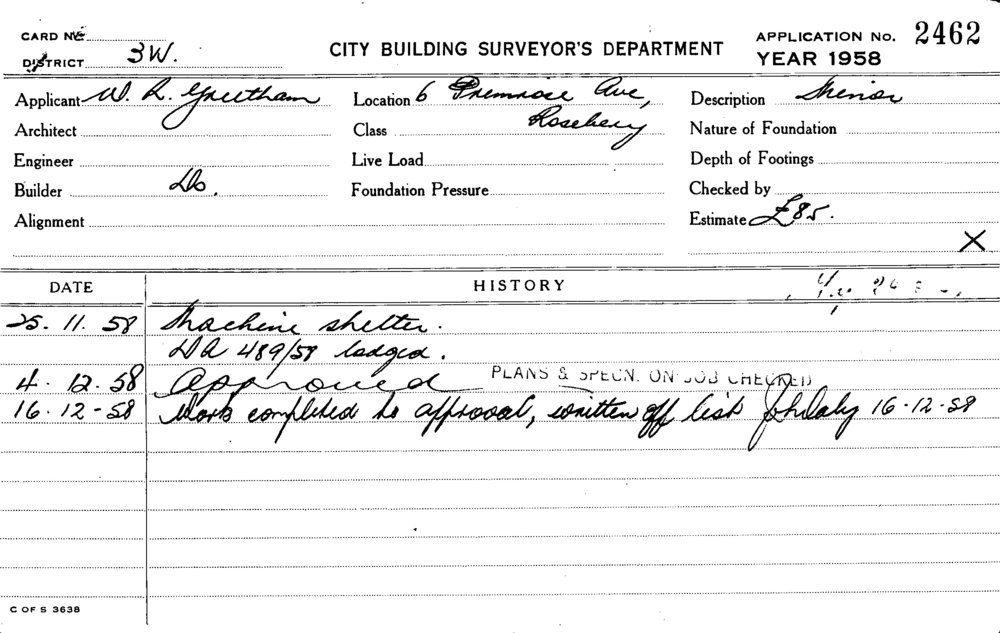 CARD No.
DISTRICT 3W.
CITY BUILDING SURVEYOR'S DEPARTMENT
APPLICATION No. 2462
YEAR 1958
Applicant W. R. Greetham
Location 6 Primrose Ave,
Rosebery
Description Minor
Architect
Class
Nature of Foundation
Engineer
Live Load
Depth of Footings
Builder Do.
Foundation Pressure
Checked by
Alignment
Estimate £85.
X
DATE
HISTORY
25. 11. 58 Machine shelter.
DA 489/58 lodged.
4. 12. 58 Approved PLANS & SPECN. ON JOB CHECKED
16-12-58 Work completed to approval, written off list 16-12-58
C OF S 3638